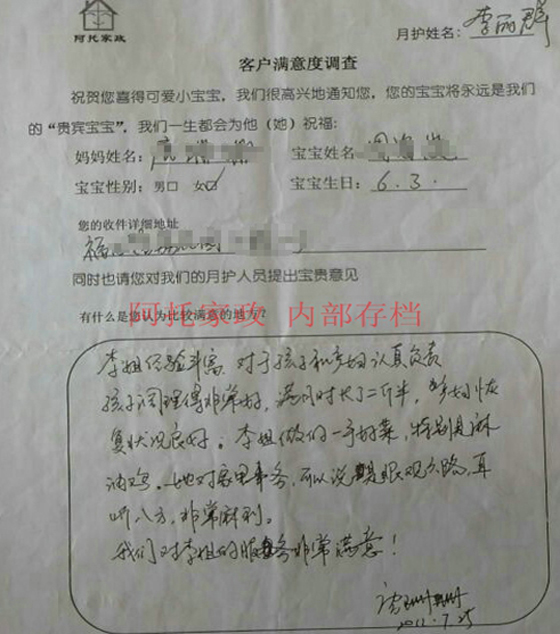 阿托家政
月护姓名:李丽群
客户满意度调查
祝贺您喜得可爱小宝宝,我们很高兴地通知您,您的宝宝将永远是我们
的“贵宾宝宝”,我们一生都会为他(她)祝福:
妈妈姓名: 宝宝姓名
宝宝性别:男□ 女☑ 宝宝生日:6.3.
您的收件详细地址
福
同时也请您对我们的月护人员提出宝贵意见
阿托家政 内部存档
有什么是您认为比较满意的地方?
李姐经验丰富,对于孩子和产妇认真负责
孩子调理得非常好,满月时长了二斤半,产妇恢
复状况良好。李姐做的一手好菜,特别是麻
油鸡。她对家里事务,可以说是眼观六路,耳
听八方,非常麻利。
我们对李姐的服务非常满意!
2012.7.25